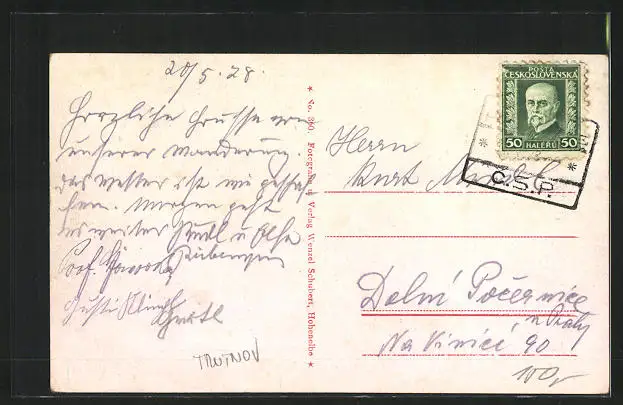 20/5. 28.
Herzliche Grüsse von
unserer Wanderung
das Wetter ist wie geschaf-
fen. Morgen geht
es weiter
Prof.
Gusti
TRUTNOV
★ No. 360. Fotografie u. Verlag Wenzel Schubert, Hohenelbe ★
POŠTA
ČESKOSLOVENSKÁ
50 HALÉŘŮ 50
Č.S.P.
Herrn
Kurt
Dolní Počernice
u Prahy
Na Vinici 90